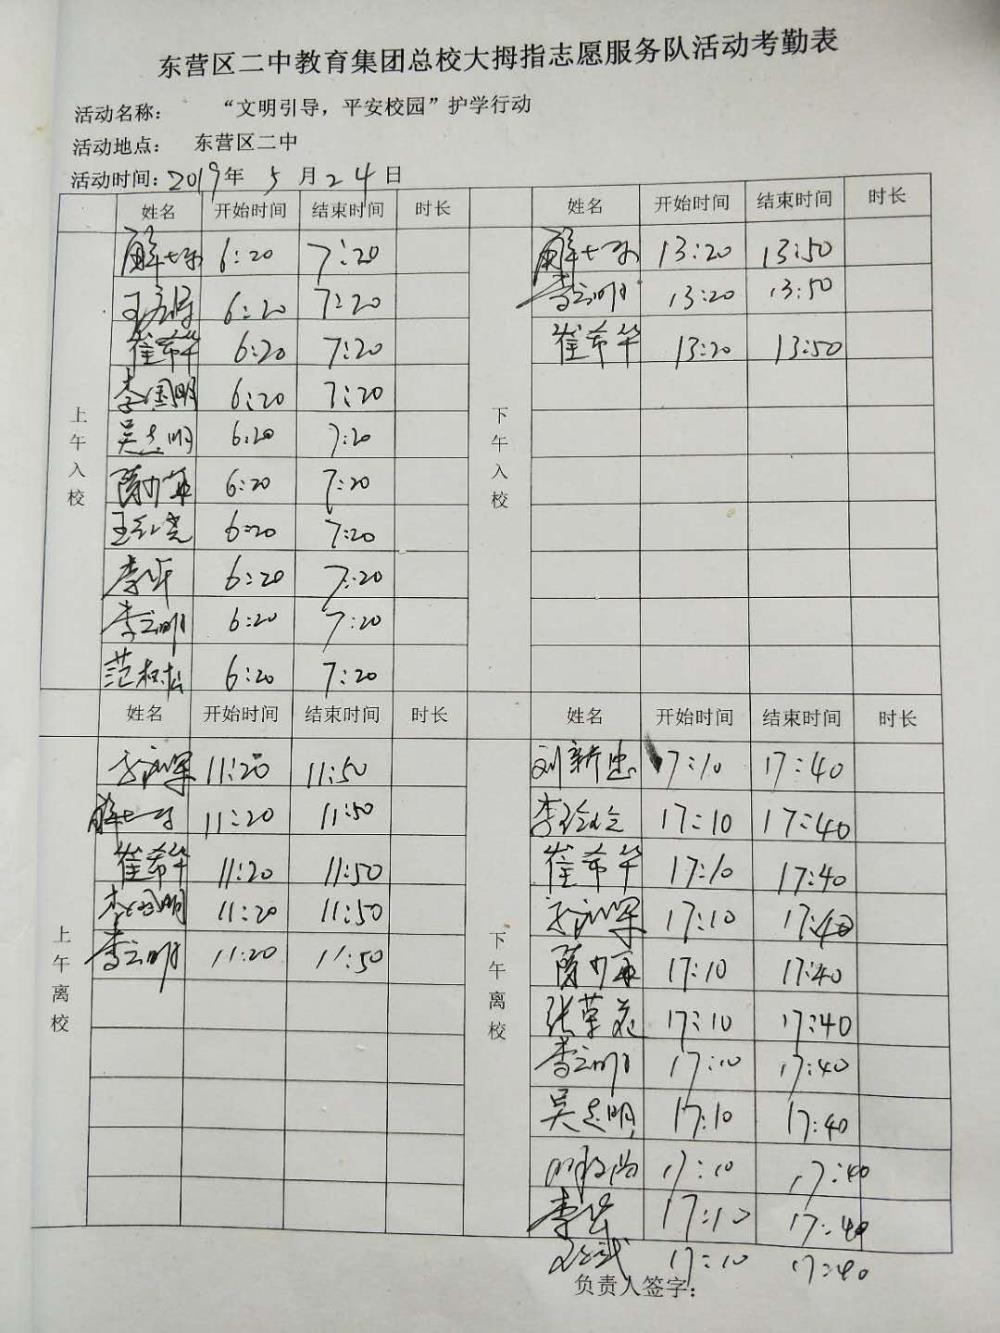 东营区二中教育集团总校大拇指志愿服务队活动考勤表
活动名称： “文明引导，平安校园”护学行动
活动地点： 东营区二中
活动时间：2019年 5 月 24 日
姓名 开始时间 结束时间 时长 姓名 开始时间 结束时间 时长
上午入校 下午入校
6:20 7:20 13:20 13:50
6:20 7:20 李云明 13:20 13:50
崔希华 6:20 7:20 崔希华 13:20 13:50
李国明 6:20 7:20
吴志明 6:20 7:20
6:20 7:20
王红光 6:20 7:20
6:20 7:20
李云明 6:20 7:20
范树松 6:20 7:20
姓名 开始时间 结束时间 时长 姓名 开始时间 结束时间 时长
上午离校 下午离校
11:20 11:50 刘新忠 17:10 17:40
11:20 11:50 李玲玲 17:10 17:40
崔希华 11:20 11:50 崔希华 17:10 17:40
李国明 11:20 11:50 17:10 17:40
李云明 11:20 11:50 17:10 17:40
17:10 17:40
李云明 17:10 17:40
吴志明 17:10 17:40
17:10 17:40
17:10 17:40
17:10 17:40
负责人签字：